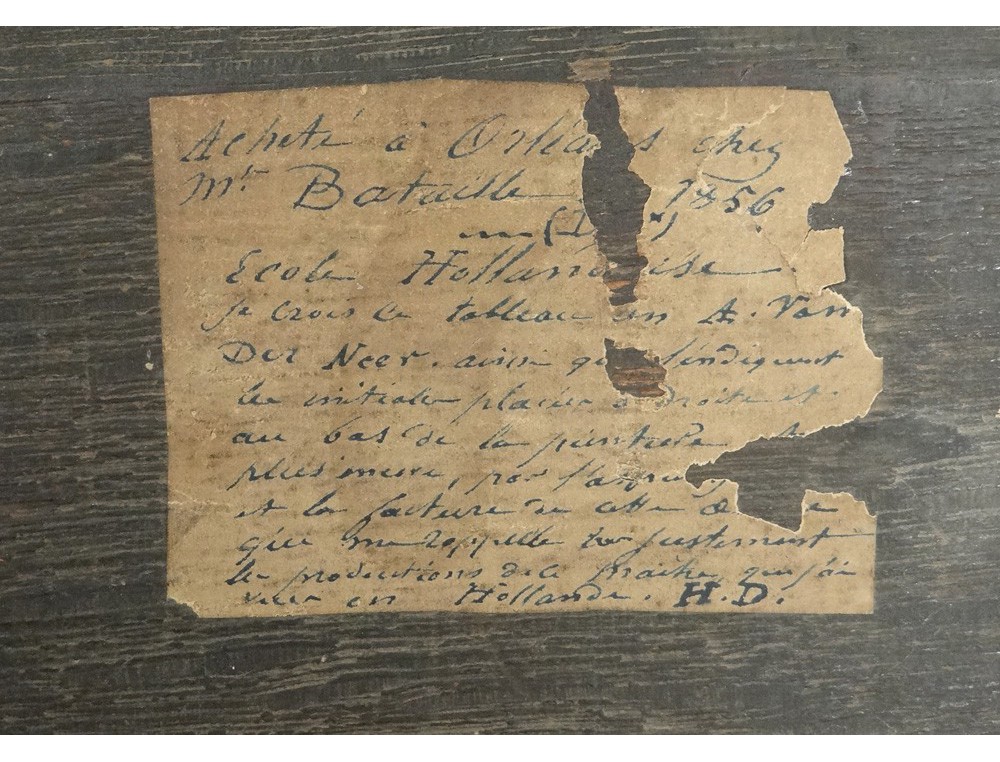 Acheté à Orléans chez
Mr Bataille 1856
Ecole Hollandaise
je crois ce tableau un A. Van
Der Neer. ainsi que l'indiquent
les initiales placées à droite et
au bas de la peinture
plus encore, par
et la facture de cette
qui me rappelle très justement
les productions de ce maître que j'ai
vues en Hollande. H.D.